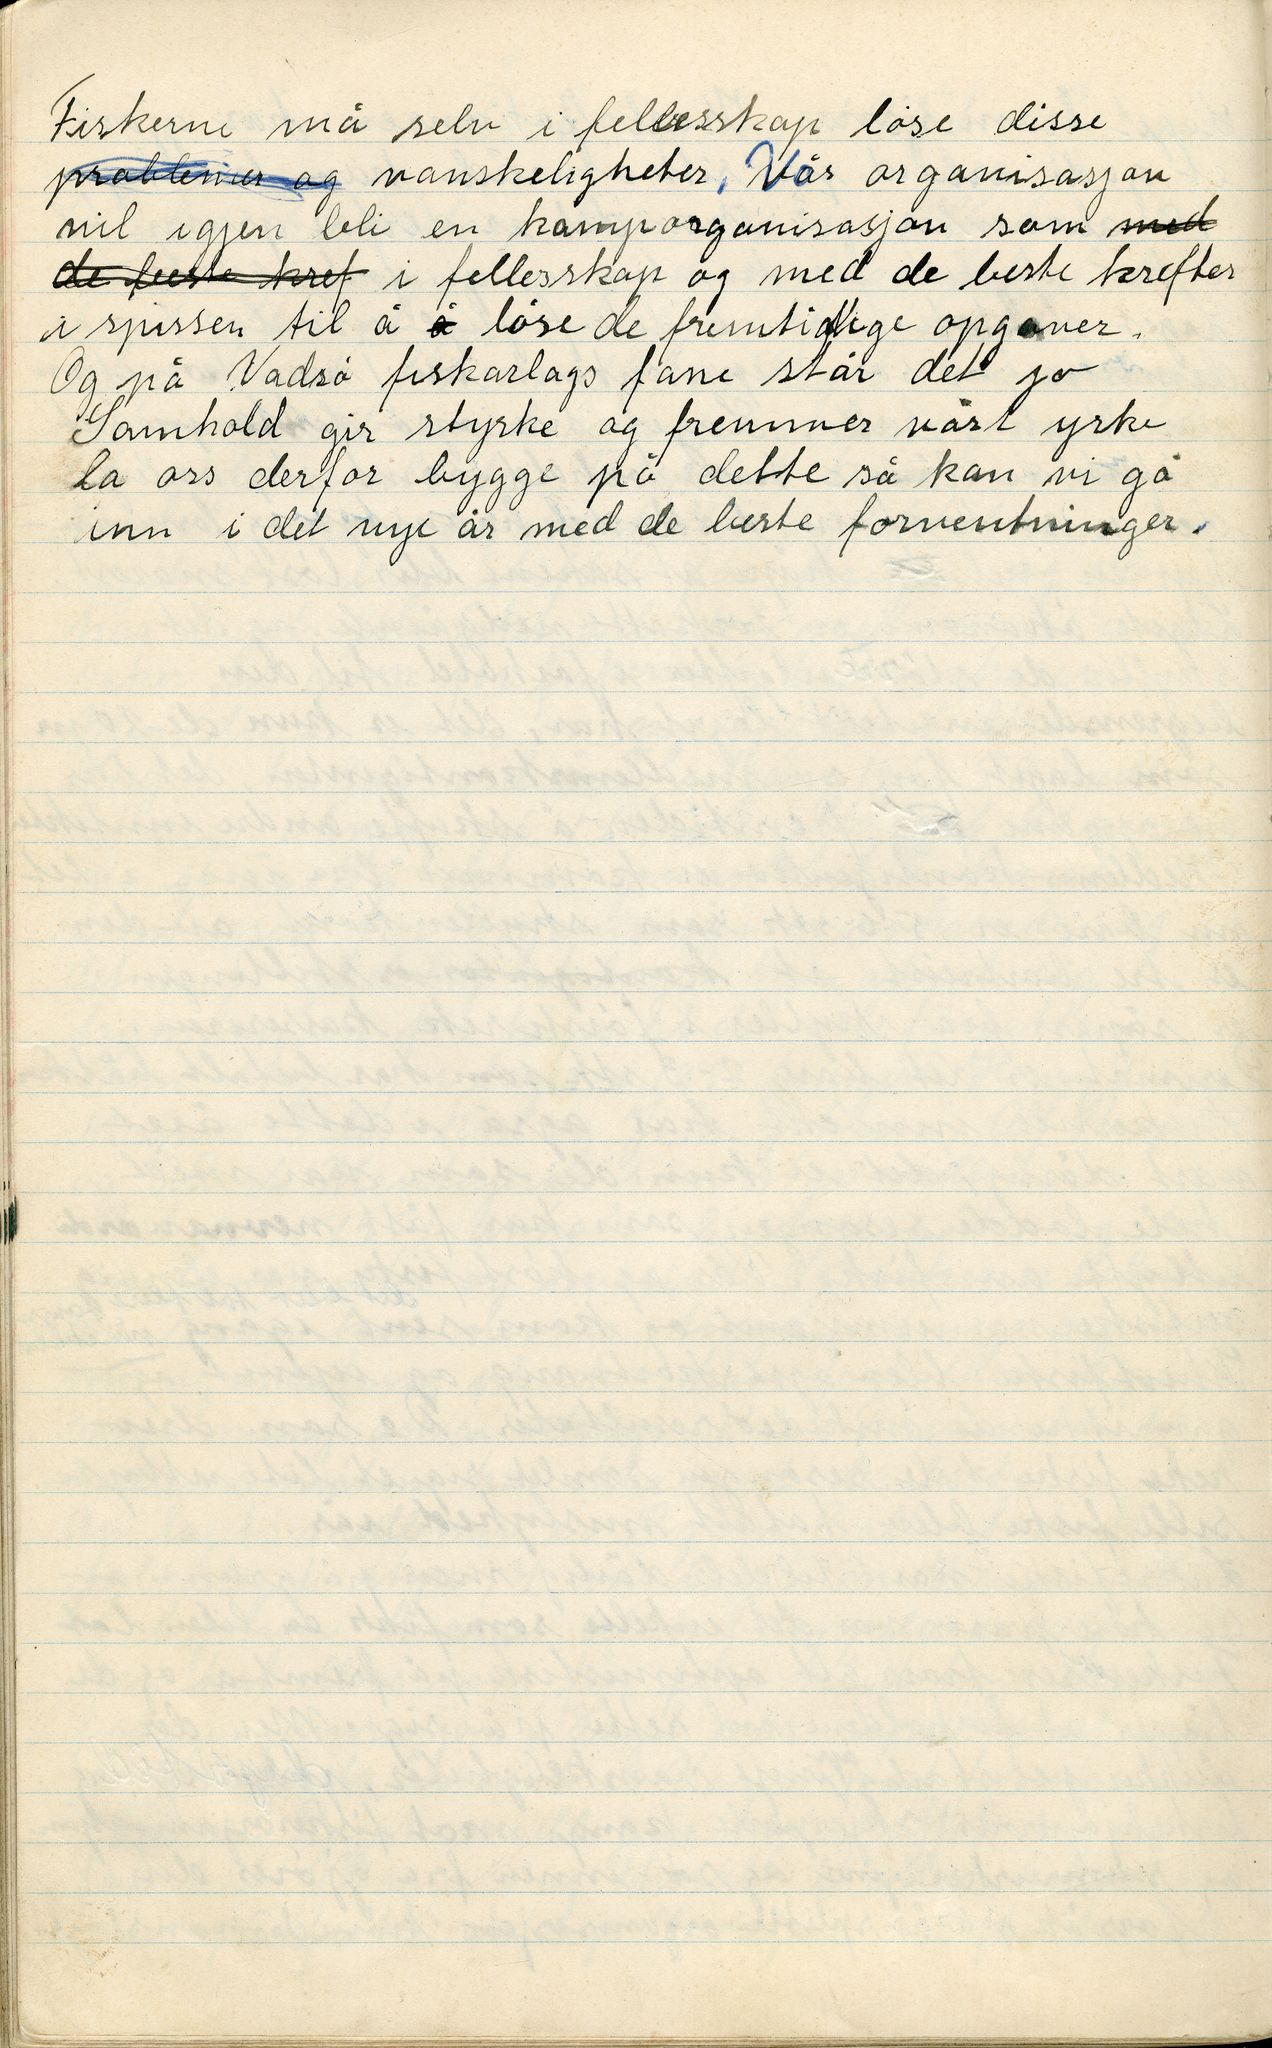 Fiskerne må selv i fellesskap löse disse
problemer og vanskeligheter. Vår organisasjon
vil igjen bli en kamporganisasjon som med
de beste kref i fellesskap og med de beste krefter
i spissen til å å löse de fremtidige opgaver.
Og på Vadsö fiskarlags fane står det jo
Samhold gir styrke og fremmer vårt yrke
la oss derfor bygge på dette så kan vi gå
inn i det nye år med de beste forventninger.